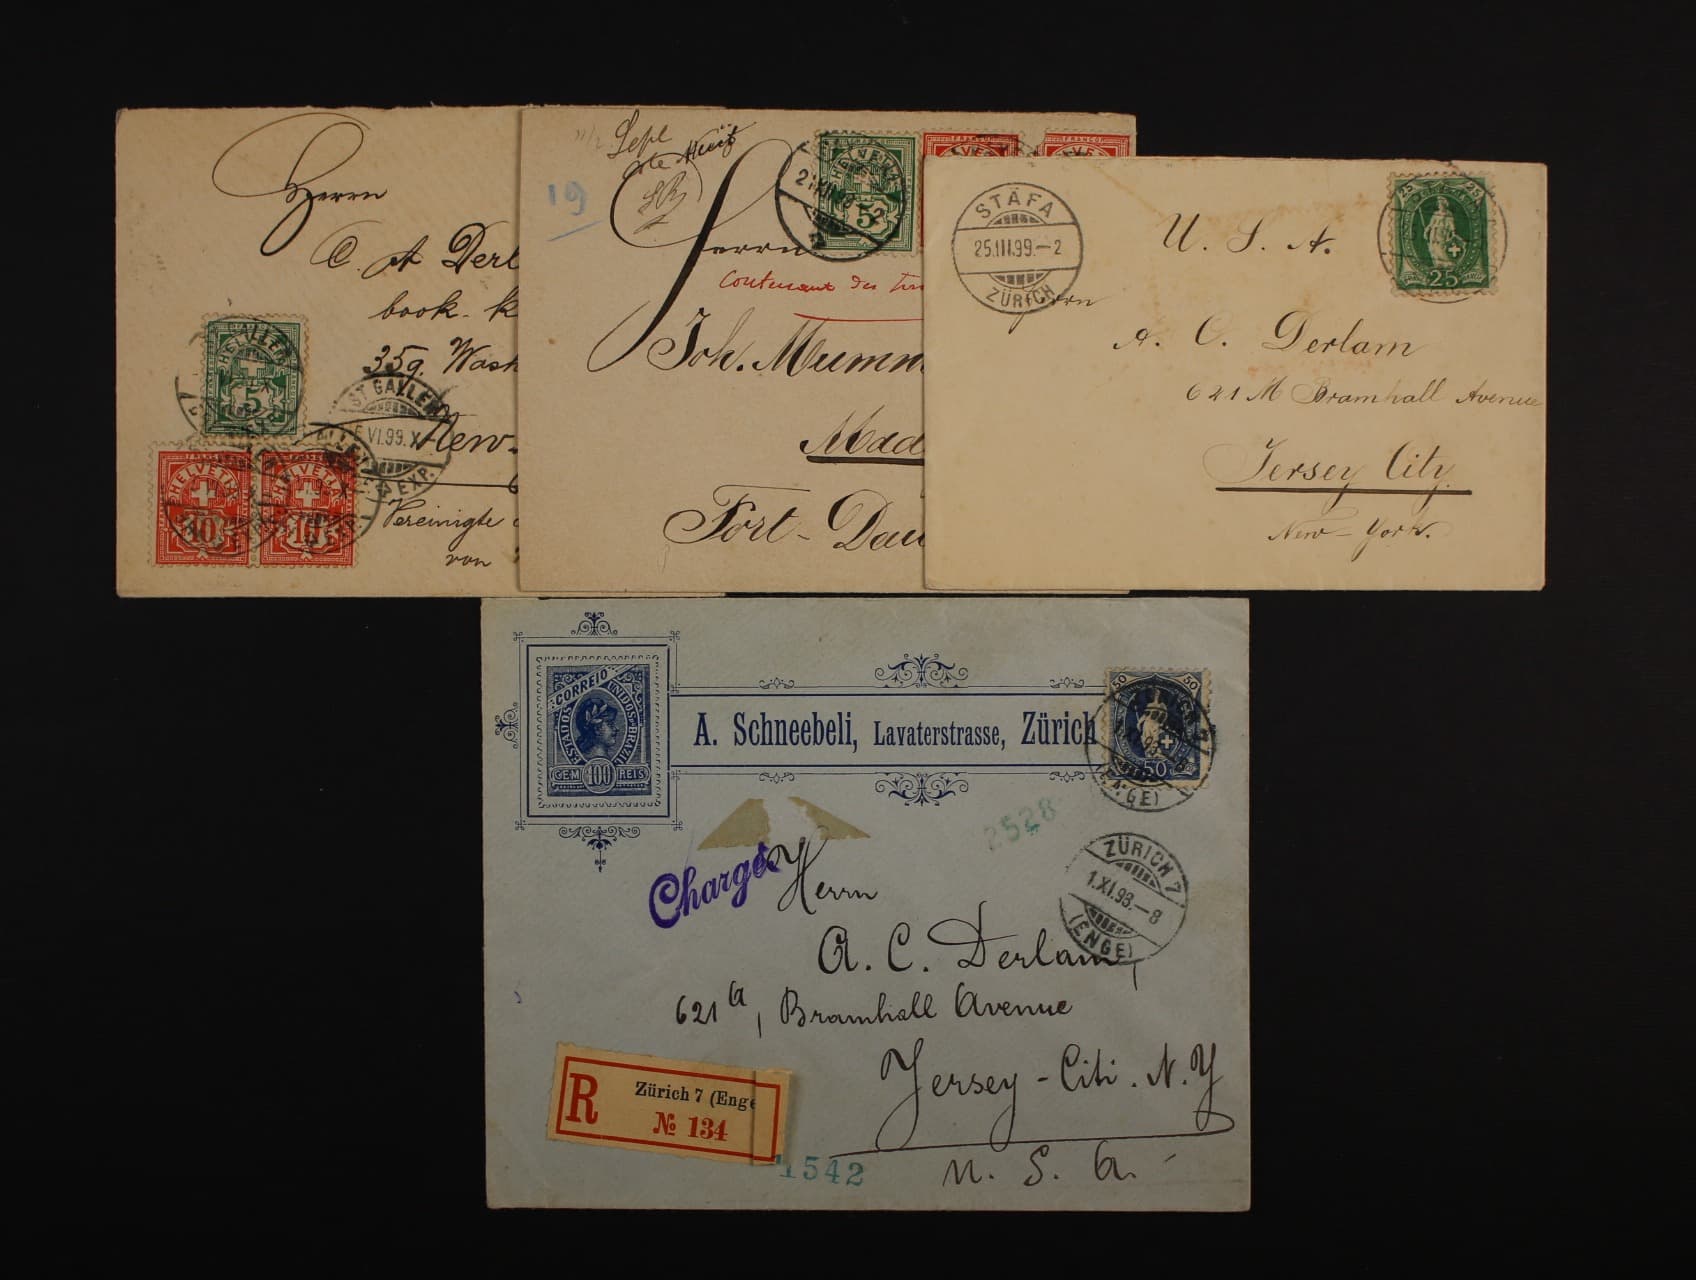 Herrn
C. A Derl
book-k
35g. Wash
New-
Vereinigte
von
HELVETIA
5
HELVETIA
10
HELVETIA
10
ST. GALLEN
VI.99.X
EXP.
Sept
19
Herrn
contenant des
Joh. Mumm
Mad
Fort-Dau
HELVETIA
5
FRANCO
FRANCO
STÄFA
25.III.99.-2
ZÜRICH
25 25
25
U. S. A.
A. C. Derlam
621 M Bramhall Avenue
Jersey City.
New-York.
CORREIO
ESTADOS UNIDOS DO BRAZIL
CEM 100 REIS
A. Schneebeli, Lavaterstrasse, Zürich
50 50
50
(ENGE)
2528
Chargé
ZÜRICH 7
1.XI.98.-8
(ENGE)
Herrn
A. C. Derlam,
621 a, Bramhall Avenue
Jersey-Citi. N.Y
U. S. A.
R
Zürich 7 (Enge
№ 134
1542